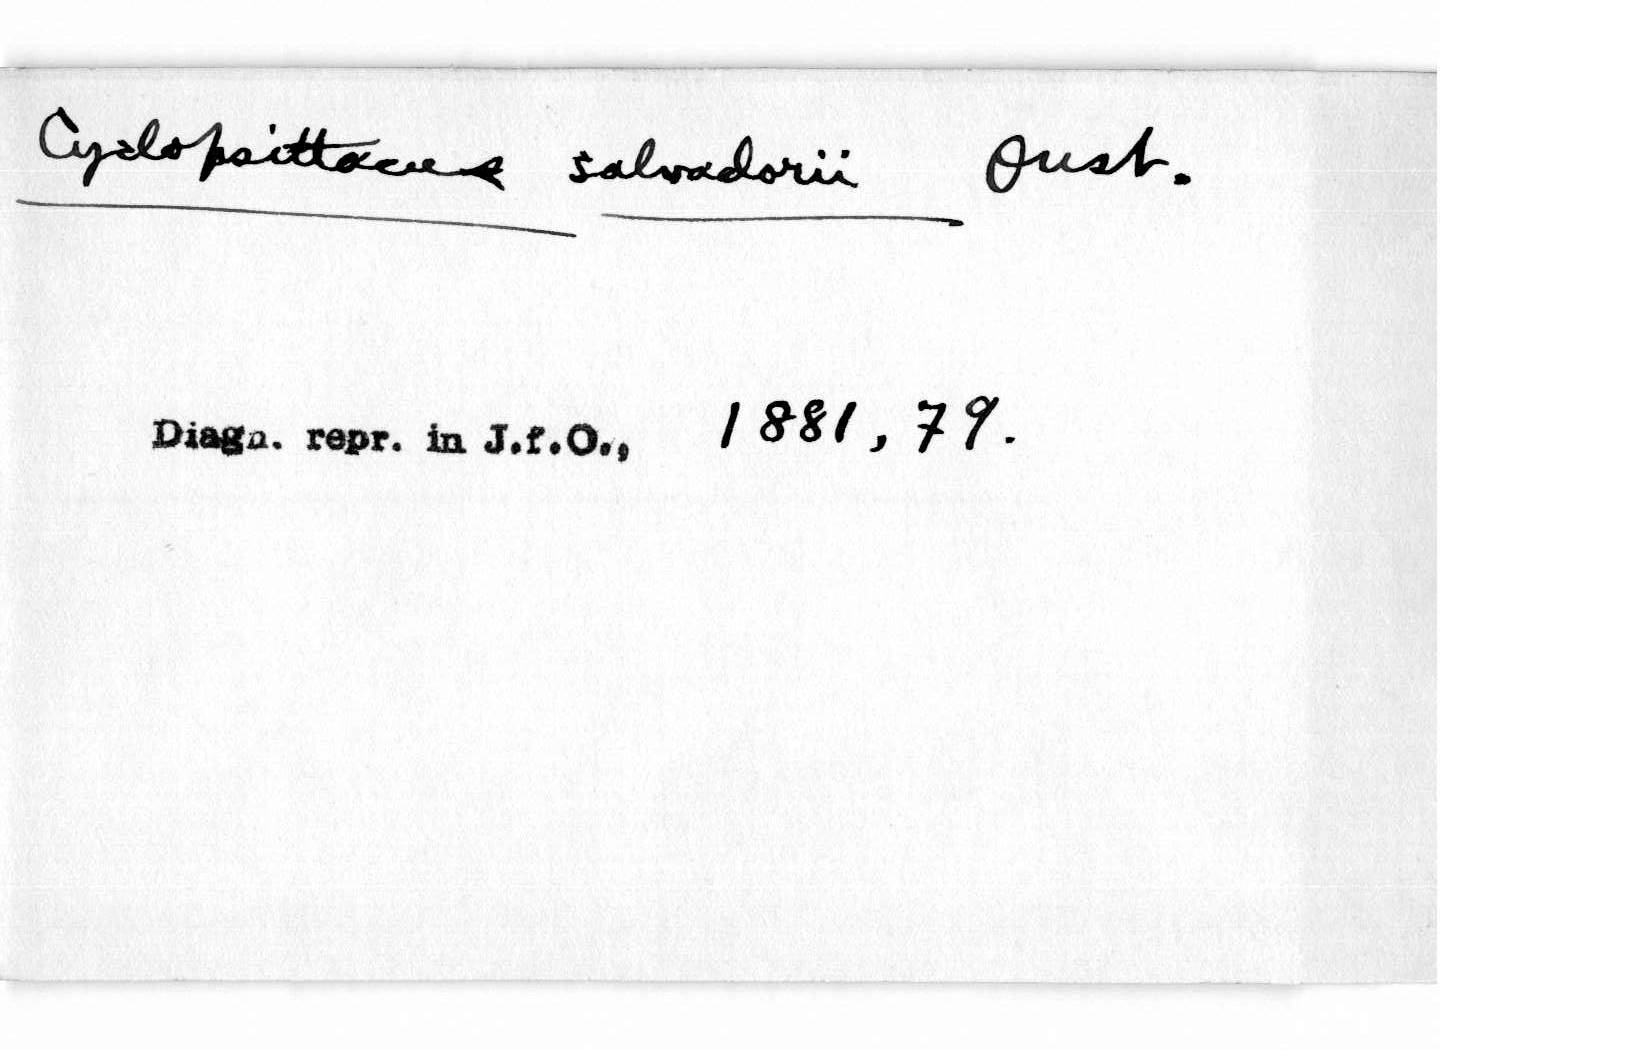 Cyclopsittacus salvadorii Oust.
Diagn. repr. in J.f.O., 1881, 79.